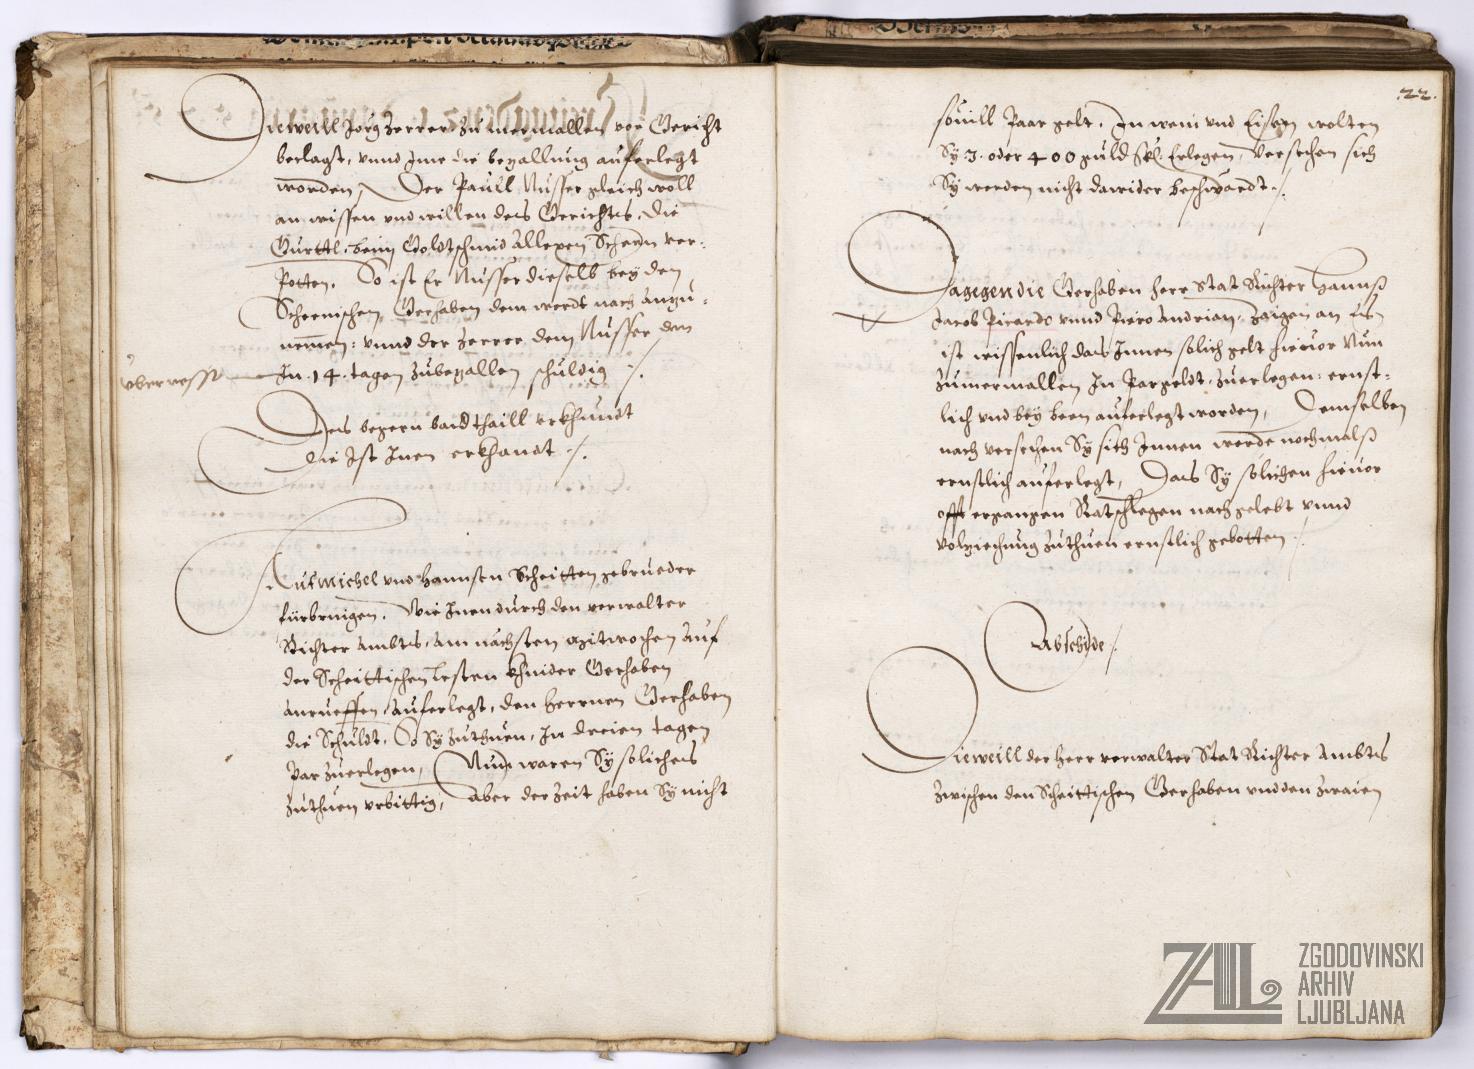 Dieweill Jörg Zerrer zu mermallen vor Gericht
beclagt, vnnd Jme die bezallung auferlegt
worden, Der Paull Nusser gleich woll
an wissen vnd willen des Gerichts, die
Gurttl, beim Goldtschmid Allexen Scheern ver-
Potten. So ist Er Nusser dieselb bey den
Scherrischen Gerhaben dem werdt nach anzu-
nemen: vnnd der Zerrer dem Nusser den
vberresst In .14. tagen zubezallen schuldig ./.
Des begern baid thaill erkhundt
die Ist Inen erkhandt ./.
Auf Michel vnd Hannsen Scheitten gebrueder
fürbringen. Wie Inen durch den verwalter
Richter Ambts, am nächsten mitwochen Auf
der Scheittischen lesten khinder Gerhaben
anrueffen, auferlegt, den herrnen Gerhaben
die Schuldt, So Sy zuthuen, In dreien tagen
Par zuerlegen, Nun waren Sy solliches
zuthuen vrbittig, Aber der Zeit haben Sy nicht
.22.
souill Paar gelt. In wein vnd Eisen wolten
Sy 3. oder 400 guld Erlegen, Versechen sich
Sy werden nicht dawider beschwärdt ./.
Dagegen die Gerhaben herr Stat Richter Hannß
Jacob Picardo vnnd Piero Andrian, zaigen an Es
ist wissenlich das Innen solich gelt hieuor Nun
zumermallen In Pargeldt, zuerlegen: ernst-
lich vnd bey peen auferlegt worden, Demselben
nach versechen Sy sich Innen werde nochmalß
ernstlich auferlegt, Das Sy solichen hieuor
offt ergangen Ratschlegen nachgelebt vnnd
volziechung zuthuen ernstlich gebotten ./.
Abschide ./.
Dieweill der herr verwalter Stat Richter Ambts
zwischen den Scheittischen Gerhaben vnd den zwaien
ZAL
ZGODOVINSKI
ARHIV
LJUBLJANA